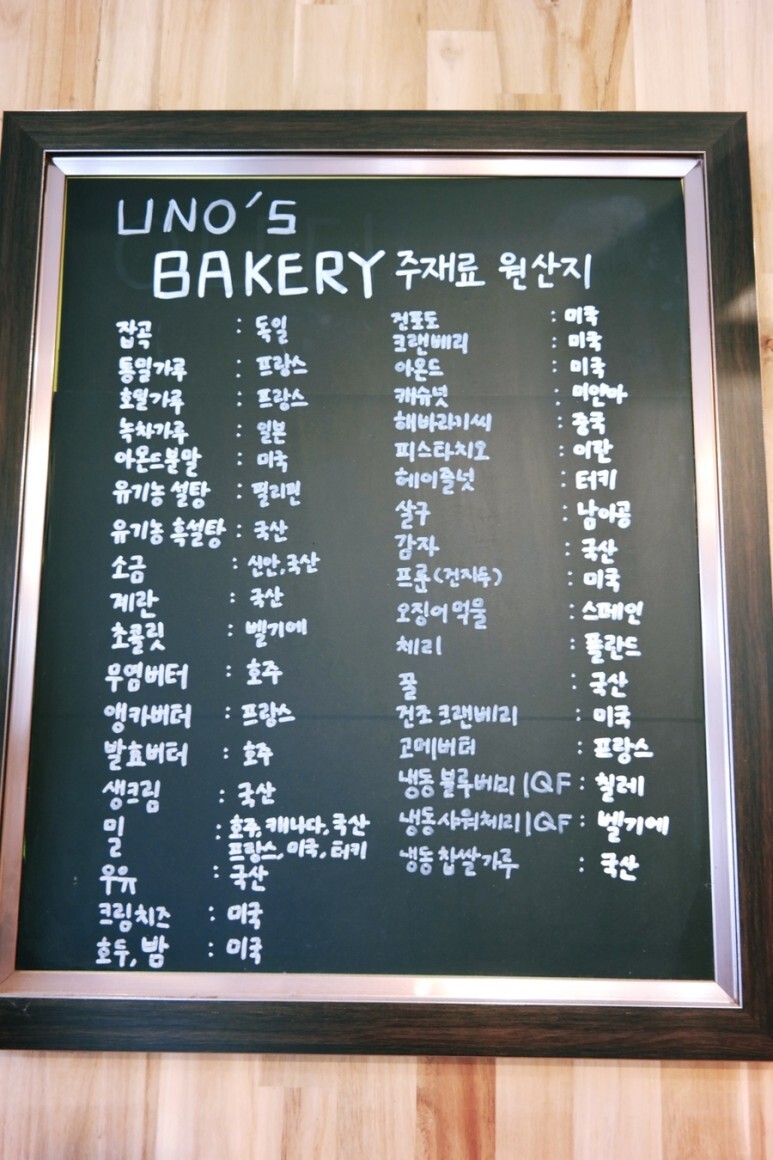 UNO'S
BAKERY 주재료 원산지
잡곡 : 독일
통밀가루 : 프랑스
호밀가루 : 프랑스
녹차가루 : 일본
아몬드분말 : 미국
유기농 설탕 : 필리핀
유기농 흑설탕 : 국산
소금 : 신안,국산
계란 : 국산
초콜릿 : 벨기에
무염버터 : 호주
앵카버터 : 프랑스
발효버터 : 호주
생크림 : 국산
밀 : 호주, 캐나다, 국산
프랑스, 미국, 터키
우유 : 국산
크림치즈 : 미국
호두, 밤 : 미국
건포도 : 미국
크랜베리 : 미국
아몬드 : 미국
캐슈넛 : 미얀마
해바라기씨 : 중국
피스타치오 : 이란
헤이즐넛 : 터키
살구 : 남아공
감자 : 국산
프룬(건자두) : 미국
오징어먹물 : 스페인
체리 : 폴란드
꿀 : 국산
건조 크랜베리 : 미국
고메버터 : 프랑스
냉동 블루베리 IQF : 칠레
냉동 사워체리 IQF : 벨기에
냉동 찹쌀가루 : 국산